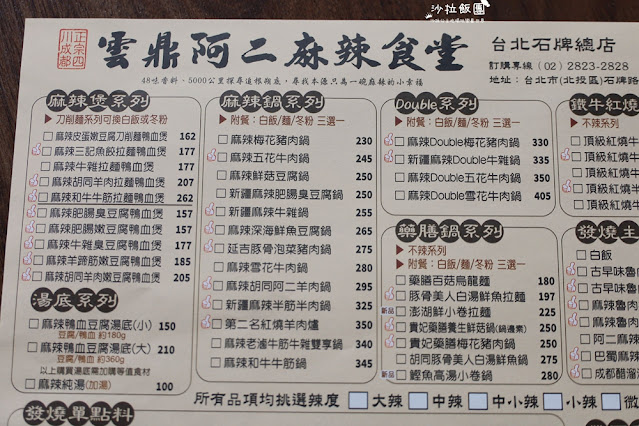 沙拉飯團
正宗四川成都
雲鼎阿二麻辣食堂
台北石牌總店
訂購專線 (02) 2823-2828
地址：台北市(北投區)石牌路
48味香料、5000公里探尋追根溯底，尋找本源只為一碗麻辣的小幸福
麻辣煲系列
▶刀削麵系列可換白飯或冬粉
麻辣皮蛋嫩豆腐刀削麵鴨血煲 162
麻辣三記魚餃拉麵鴨血煲 177
麻辣牛雜拉麵鴨血煲 177
麻辣胡同羊肉拉麵鴨血煲 207
麻辣和牛牛筋拉麵鴨血煲 262
麻辣肥腸臭豆腐鴨血煲 157
麻辣肥腸嫩豆腐鴨血煲 157
麻辣牛雜臭豆腐鴨血煲 177
麻辣羊蹄筋嫩豆腐鴨血煲 185
麻辣胡同羊肉嫩豆腐鴨血煲 205
湯底系列
麻辣鴨血豆腐湯底(小) 150
豆腐/鴨血 約180g
麻辣鴨血豆腐湯底(大) 210
豆腐/鴨血 約360g
以上購買湯底需加購等值食材
麻辣純湯(加湯) 100
發燒單點料
麻辣鍋系列
▶附餐：白飯/麵/冬粉 三選一
麻辣梅花豬肉鍋 230
麻辣五花牛肉鍋 245
麻辣鮮菇豆腐鍋 250
新疆麻辣肥腸臭豆腐鍋 250
新疆麻辣牛雜鍋 255
麻辣深海鮮魚豆腐鍋 255
延吉豚骨泡菜豬肉鍋 275
麻辣雪花牛肉鍋 280
麻辣胡同阿二羊肉鍋 295
新疆麻辣半筋半肉鍋 320
第二名紅燒羊肉爐 350
麻辣老滷牛筋牛雜雙享鍋 340
麻辣和牛牛筋鍋 345
Double系列
▶附餐：白飯/麵/冬粉 三選一
麻辣Double梅花豬肉鍋 330
新疆麻辣Double牛雜鍋 335
麻辣Double五花牛肉鍋 350
麻辣Double雪花牛肉鍋 405
藥膳鍋系列
▶不辣系列
▶附餐：白飯/麵/冬粉 三選一
藥膳百菇烏龍麵 180
豚骨美人白湯鮮魚拉麵 197
新品 澎湖鮮小卷拉麵 225
貴妃藥膳養生鮮菇鍋(鍋邊素) 250
貴妃藥膳梅花豬肉鍋 250
胡同豚骨美人白湯鮮魚鍋 250
新品 鰹魚高湯小卷鍋 280
鐵牛紅燒
▶不辣系列
頂級紅燒牛
頂級紅燒
頂級紅燒牛
頂級紅燒牛
發燒主
白飯
古早味魯
古早味魯
麻辣魯肉
麻辣魯肉
阿二麻辣
巴蜀麻辣
成都醋溜
所有品項均挑選辣度 大辣 中辣 中小辣 小辣 微